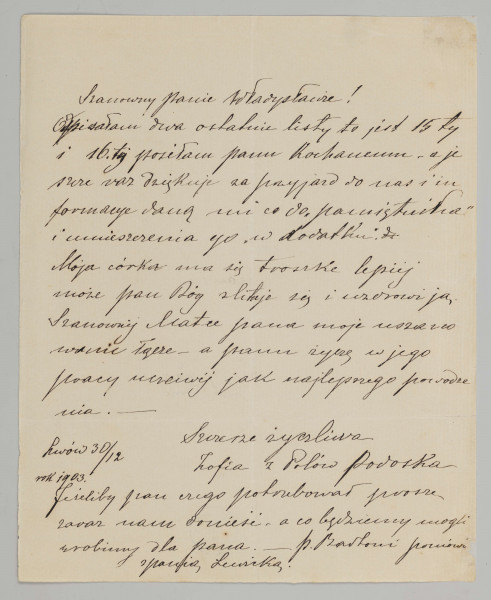 Szanowny Panie Władysławie!
Odpisałam dwa ostatnie listy to jest 15ty
i 16.ty posełam panu Kochanemu - a je
szcze raz dziękuję za przyjazd do nas i in
formacye daną mi co do "pamiętnika"
i umieszczenia go "w dodatku".
Moja córka ma się troszkę lepiej
może pan Bóg zlituje się i uzdrowi ją.
Szanownej Matce pana moje uszano
wanie łączę - a panu życzę w jego
pracy uczciwej jak najlepszego powodze
nia. —
Szczerze życzliwa
Zofia z Polów Podoska
Lwów 30/12
rok 1903.
Jeżeliby pan czego potrzebował proszę
zaraz nam donieść - a co będziemy mogli
zrobimy dla pana. — p.
z panią Lewicką.